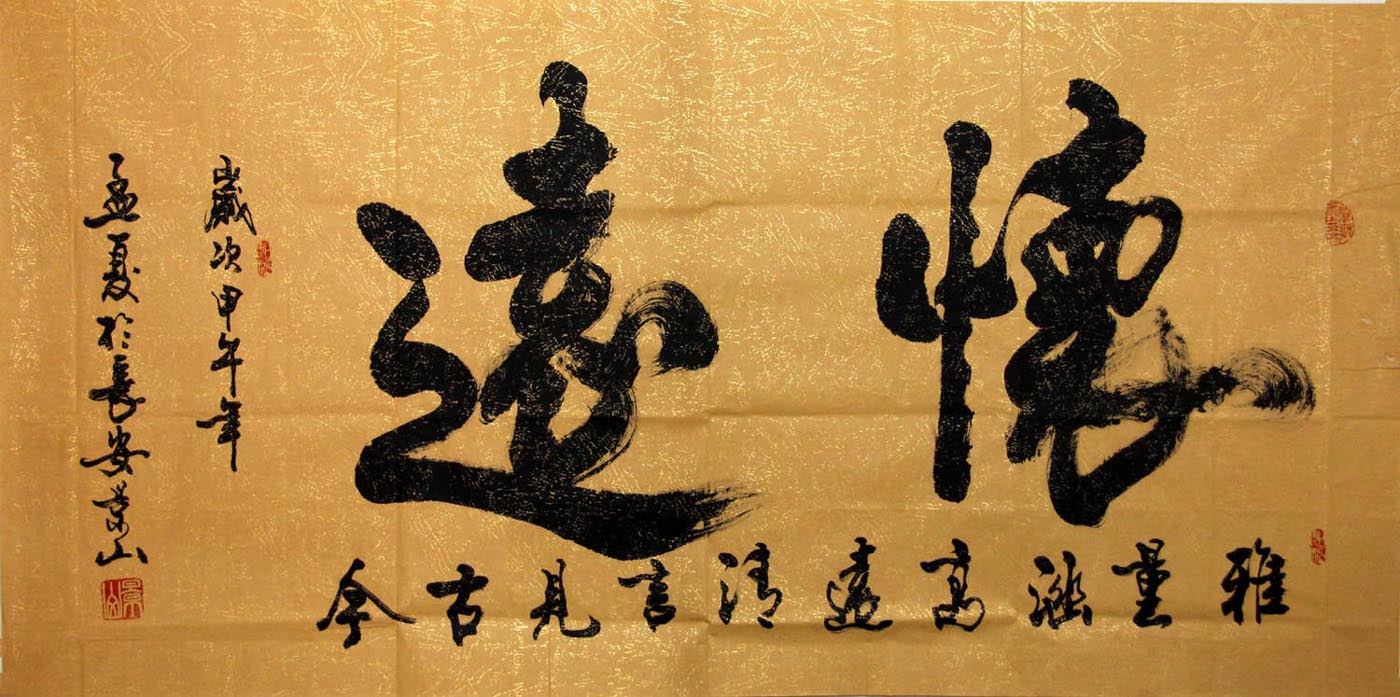 懷遠
雅量涵高遠清言見古今
歲次甲午年
孟夏於長安景山